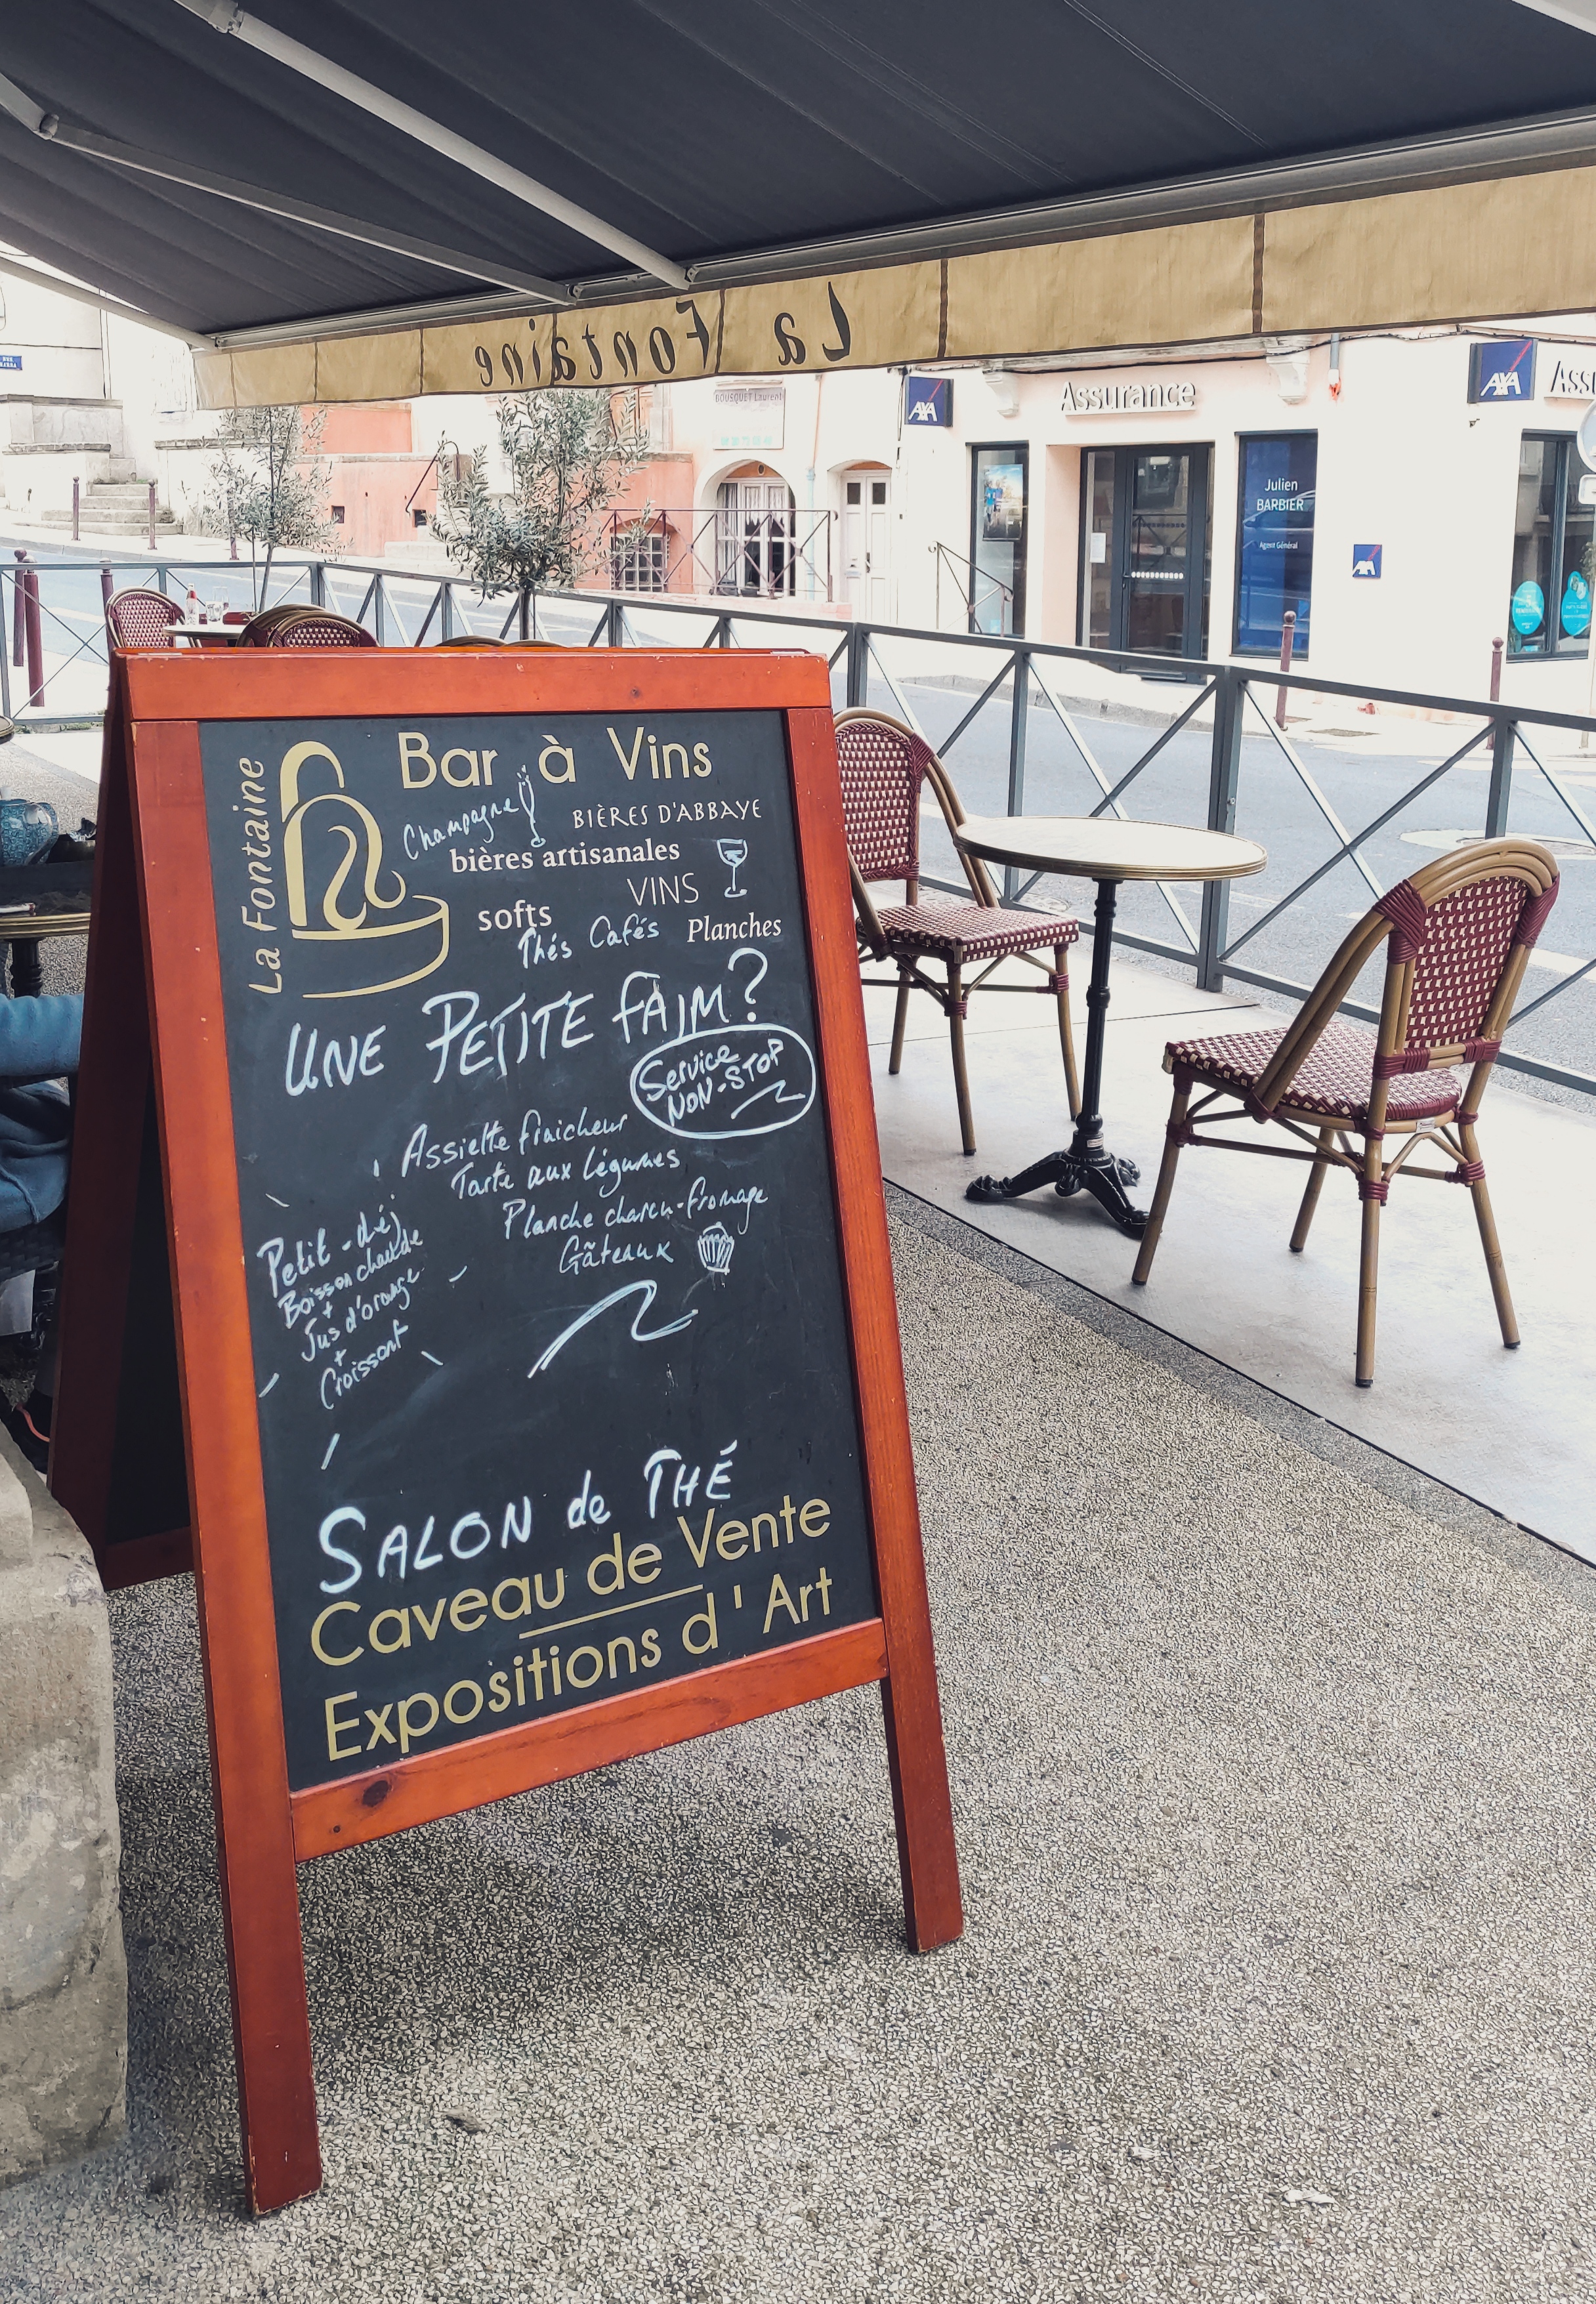 La Fontaine
AXA
Assurance
AXA
BOUSQUET Laurent
Julien
BARBIER
Agent Général
AXA
La Fontaine
Bar à Vins
Champagne
BIÈRES D'ABBAYE
bières artisanales
VINS
softs
Thés Cafés
Planches
UNE PETITE FAIM?
Service
NON-STOP
Assiette fraicheur
Tarte aux légumes
Planche charcu-fromage
Gâteaux
Petit-déj
Boisson chaude
+
Jus d'orange
+
Croissant
SALON de THÉ
Caveau de Vente
Expositions d'Art